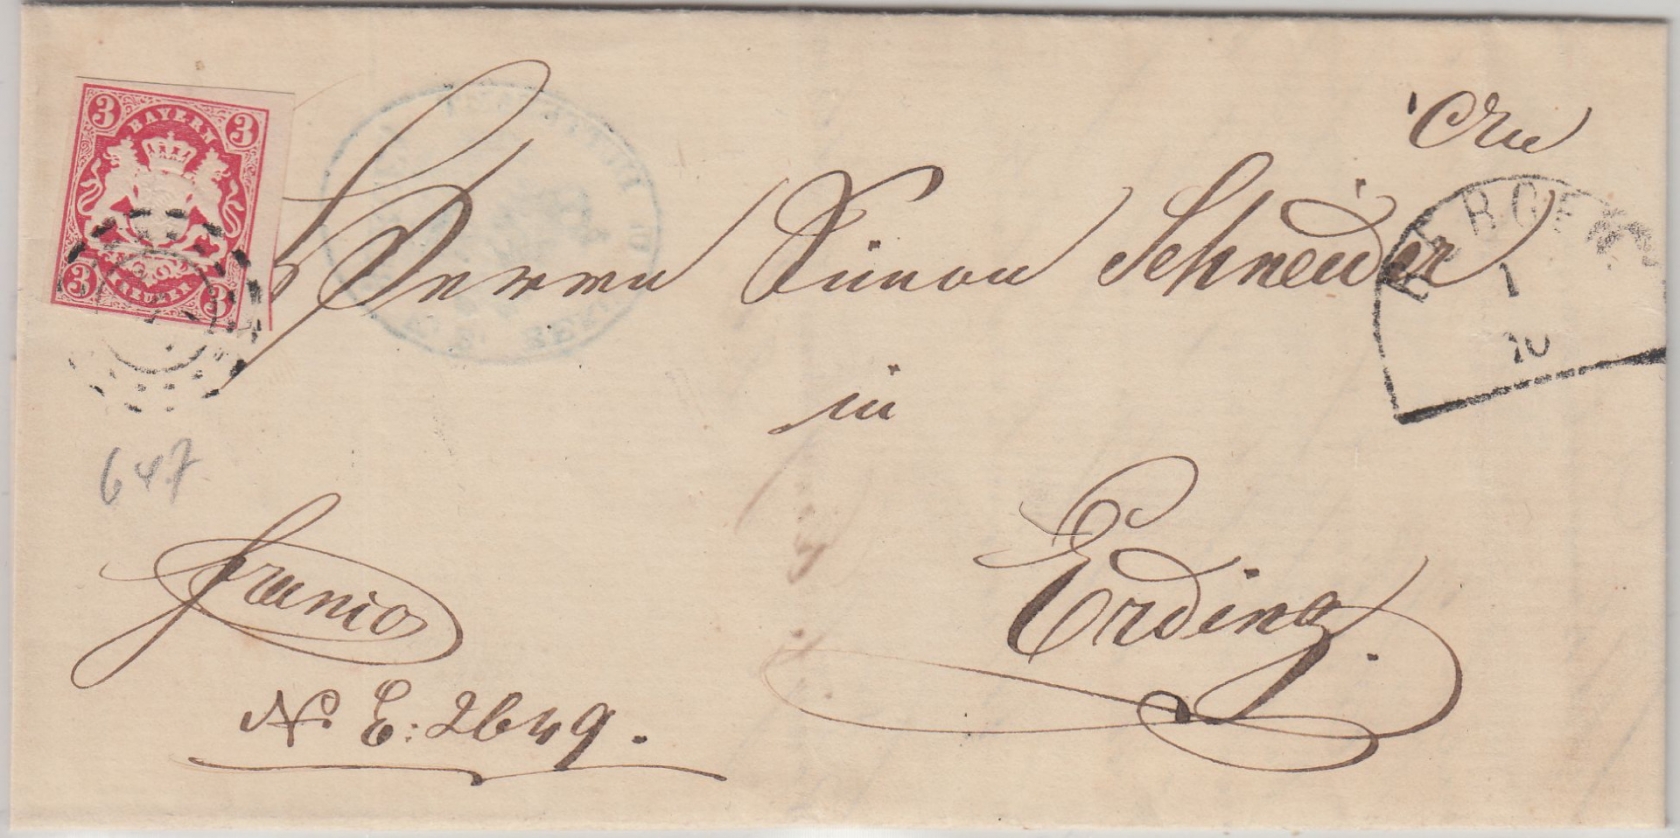 3 BAYERN 3
3 KREUZER 3
An
Herrn Simon Schneider
1
10
in
647
Erding.
franco
N. E: 2649.